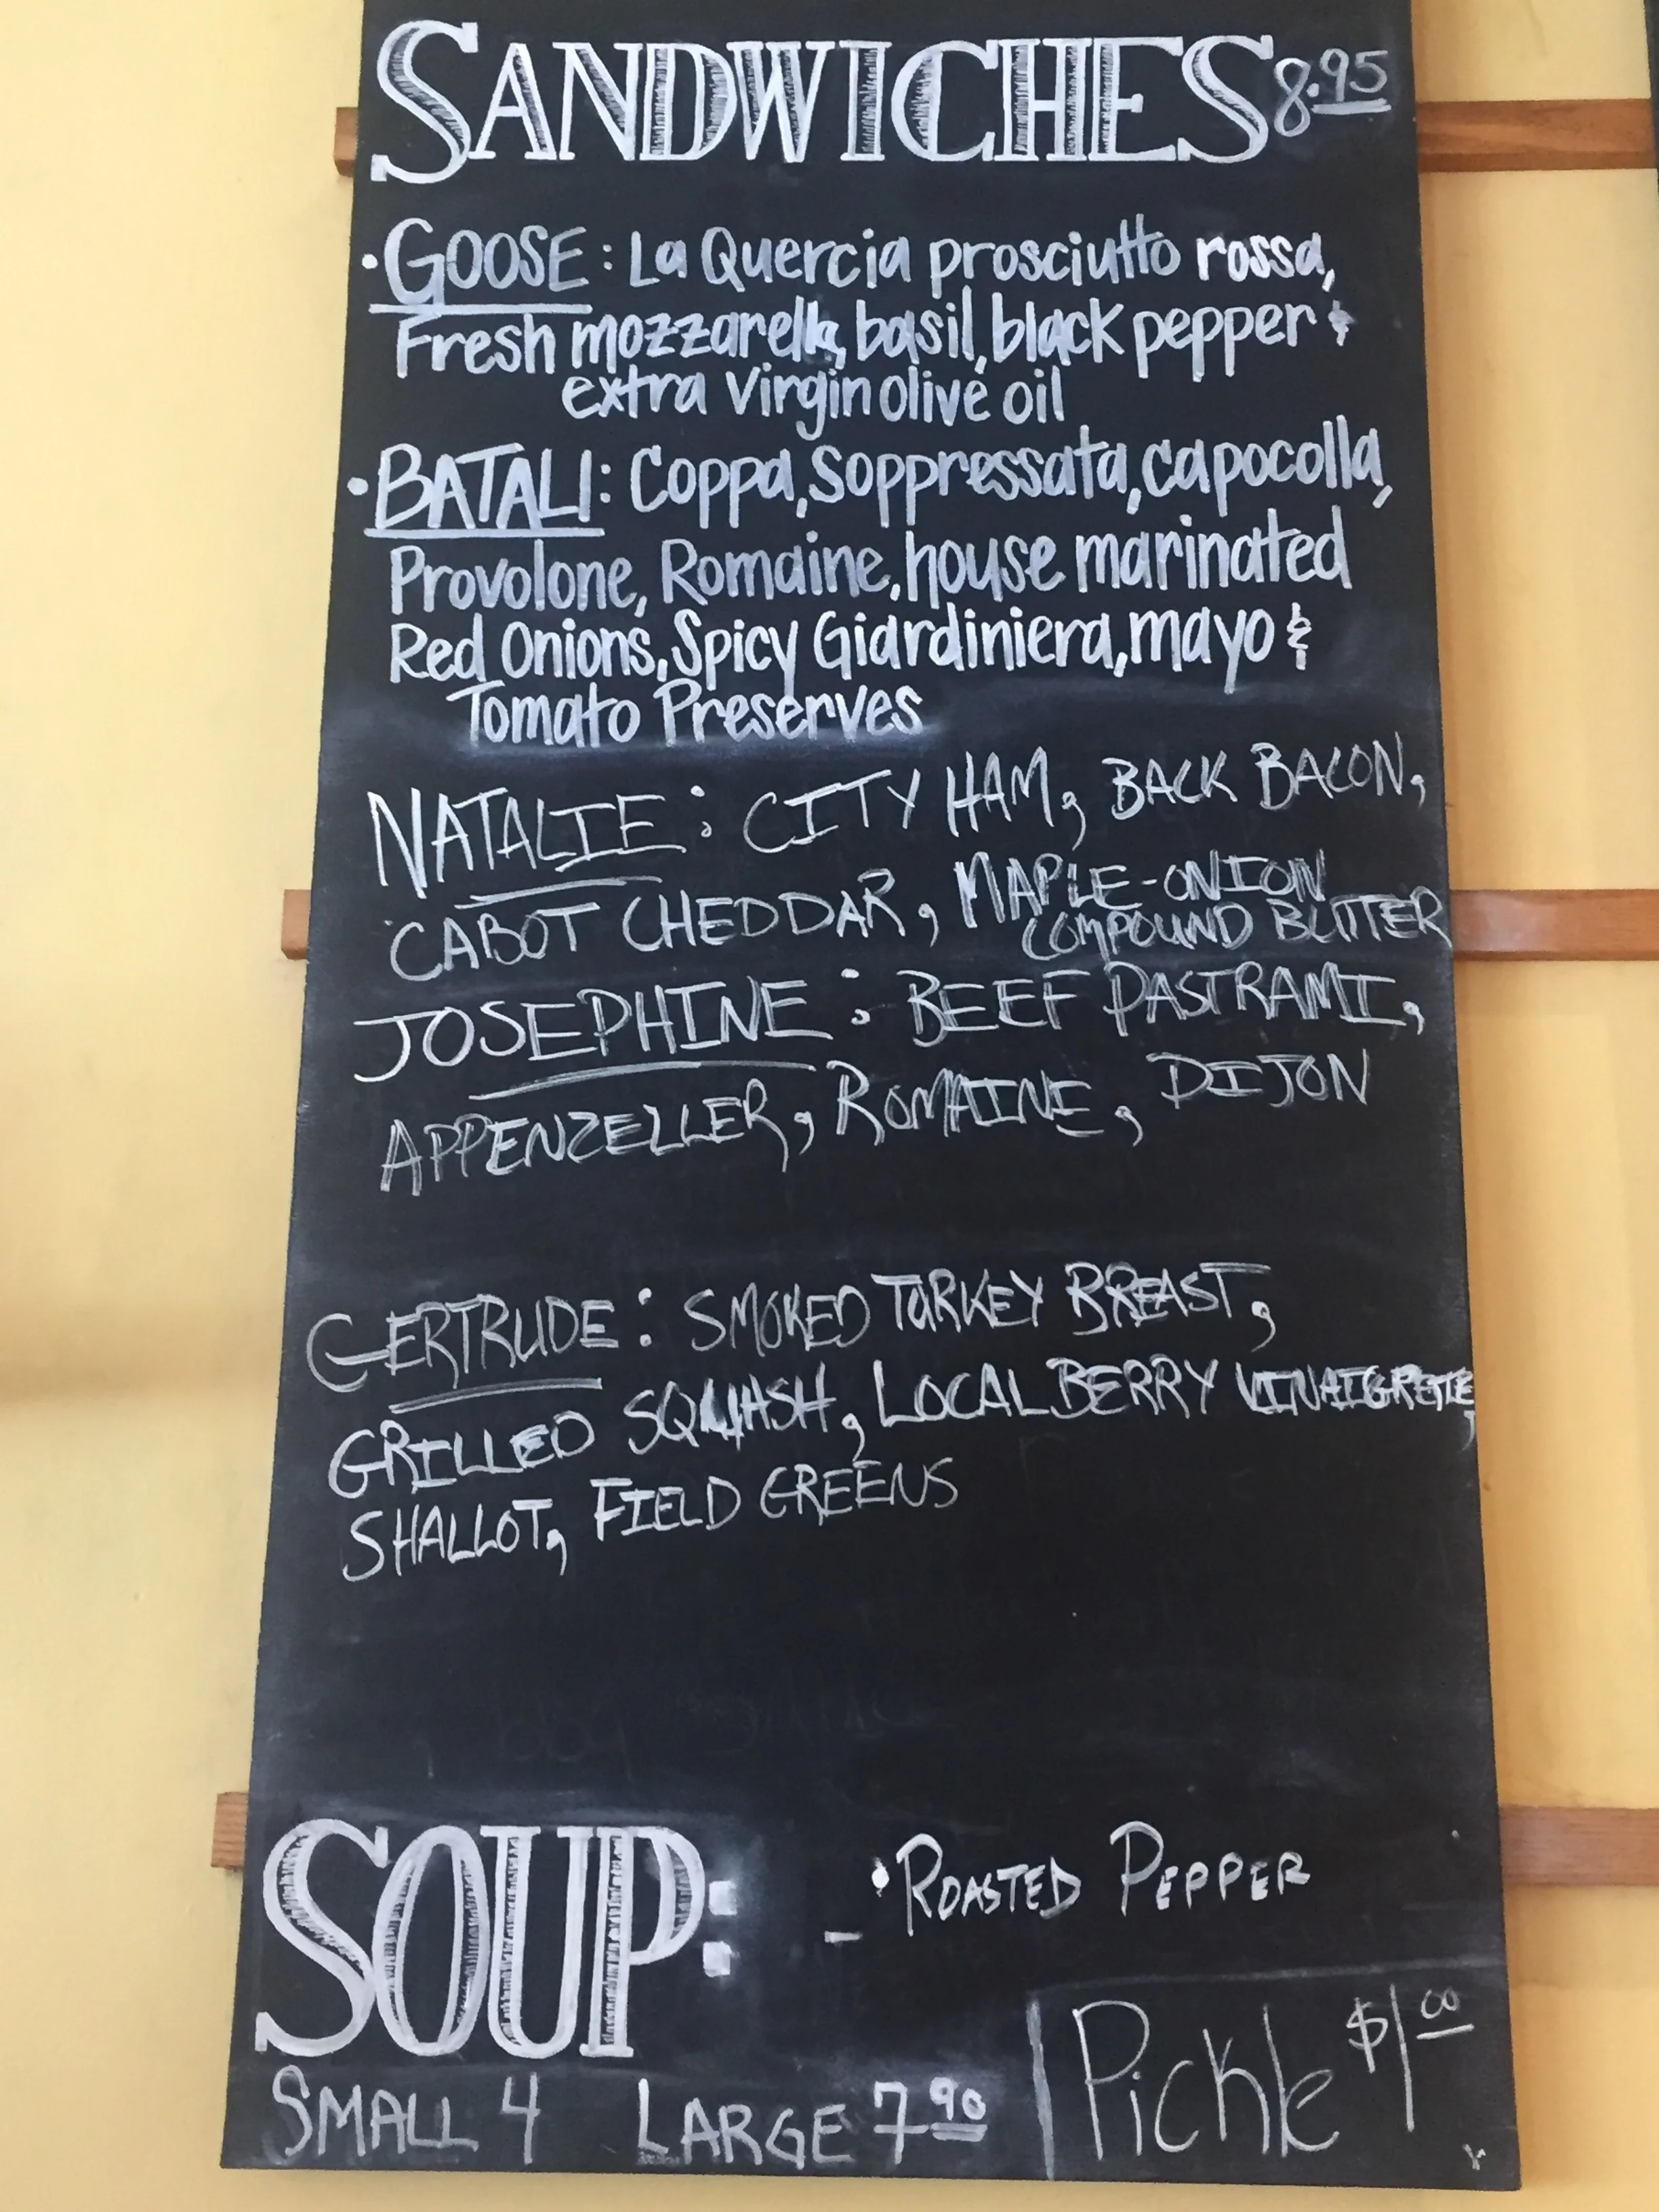 SANDWICHES 8.95
• GOOSE: La Quercia prosciutto rossa,
Fresh mozzarella, basil, black pepper &
extra virgin olive oil
• BATALI: Coppa, Soppressata, capocolla,
Provolone, Romaine, house marinated
Red Onions, Spicy Giardiniera, mayo &
Tomato Preserves
NATALIE: CITY HAM, BACK BACON,
CABOT CHEDDAR, MAPLE-ONION
COMPOUND BUTTER
JOSEPHINE: BEEF PASTRAMI,
APPENZELLER, ROMAINE, DIJON
GERTRUDE: SMOKED TURKEY BREAST,
GRILLED SQUASH, LOCAL BERRY VINAIGRETTE,
SHALLOT, FIELD GREENS
SOUP: - • ROASTED PEPPER
SMALL 4 LARGE 7.90
Pickle $1.00